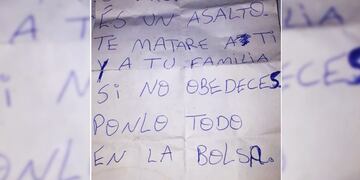 ÉS UN ASALTO.
TE MATARE A TI
Y A TU FAMILIA
SI NO OBEDECES
PONLO TODO
EN LA BOLSA.